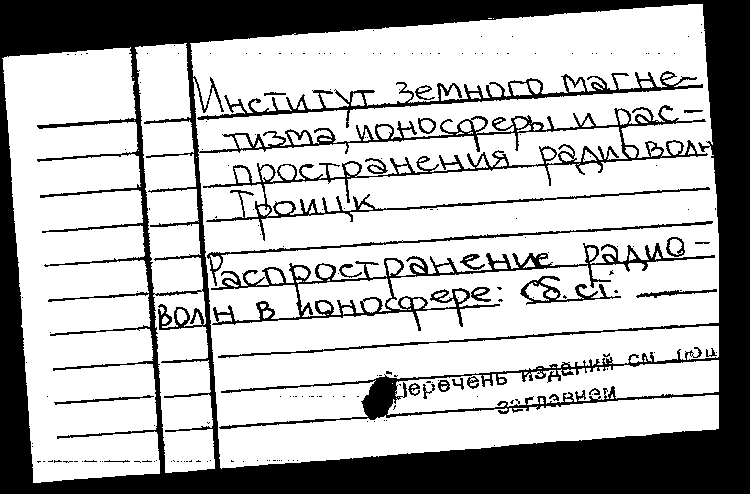 Институт земного магне-
тизма, ионосферы и рас-
пространения радиоволн
Троицк
Распространение радио-
волн в ионосфере: Сб. ст.
Перечень изданий см. под
заглавием